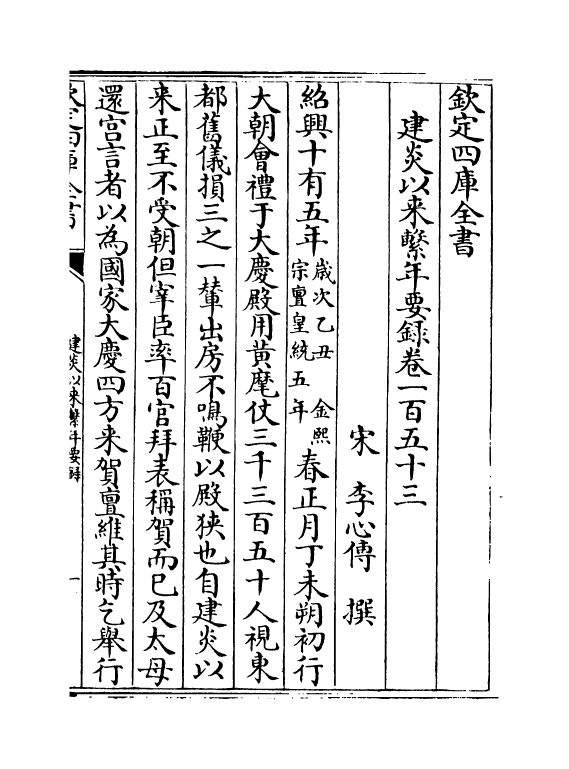 欽定四庫全書
建炎以来繫年要錄卷一百五十三
宋　李心傳　撰
紹興十有五年歲次乙丑　金熙宗亶皇統五年春正月丁未朔初行
大朝會禮于大慶殿用黄麾仗三千三百五十人視東
都舊儀損三之一輦出房不鳴鞭以殿狹也自建炎以
来正至不受朝但宰臣率百官拜表稱賀而已及太母
還宫言者以為國家大慶四方来賀亶維其時乞舉行
欽定四庫全書
建炎以来繫年要錄
一